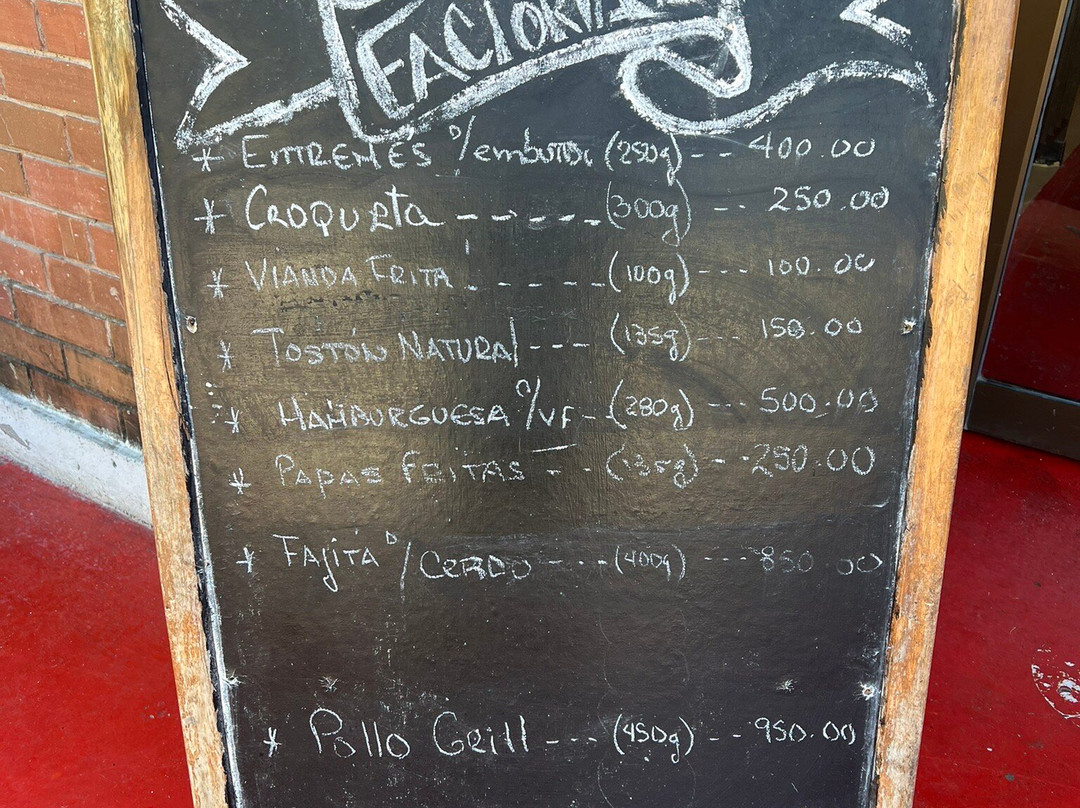 FACTORIA
* ENTREMÉS D/embutido (250g) -- 400.00
* CROQUETA ----- (300g) -- 250.00
* VIANDA FRITA ----- (100g) --- 100.00
* TOSTÓN NATURAl --- (135g) --- 150.00
* HAMBURGUESA C/VF - (280g) -- 500.00
* PAPAS FRITAS -- (135g) -- 250.00
* FAJITA D/CERDO --- (400g) --- 850.00
* Pollo Grill --- (450g) -- 950.00